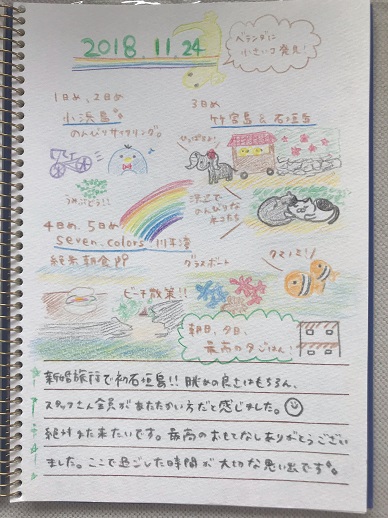 2018.11.24
ベランダに
小さいっつ発見！
1日め、2日め
小浜島
のんびりサイクリング。
3日め
竹富島&石垣島
浮島で
のんびりな
ネコたち
4日め、5日め
seven colors 川平湾
絶景朝食
グラスボート
クマノミ！
ビーチ散策！！
朝日、夕日、
最高の夕ごはん！
新婚旅行で初石垣島！！眺めの良さはもちろん、
スタッフさん全員があたたかい方だと感じました。
絶対また来たいです。最高のおもてなしありがとうござい
ました。ここで過ごした時間が大切な思い出です。